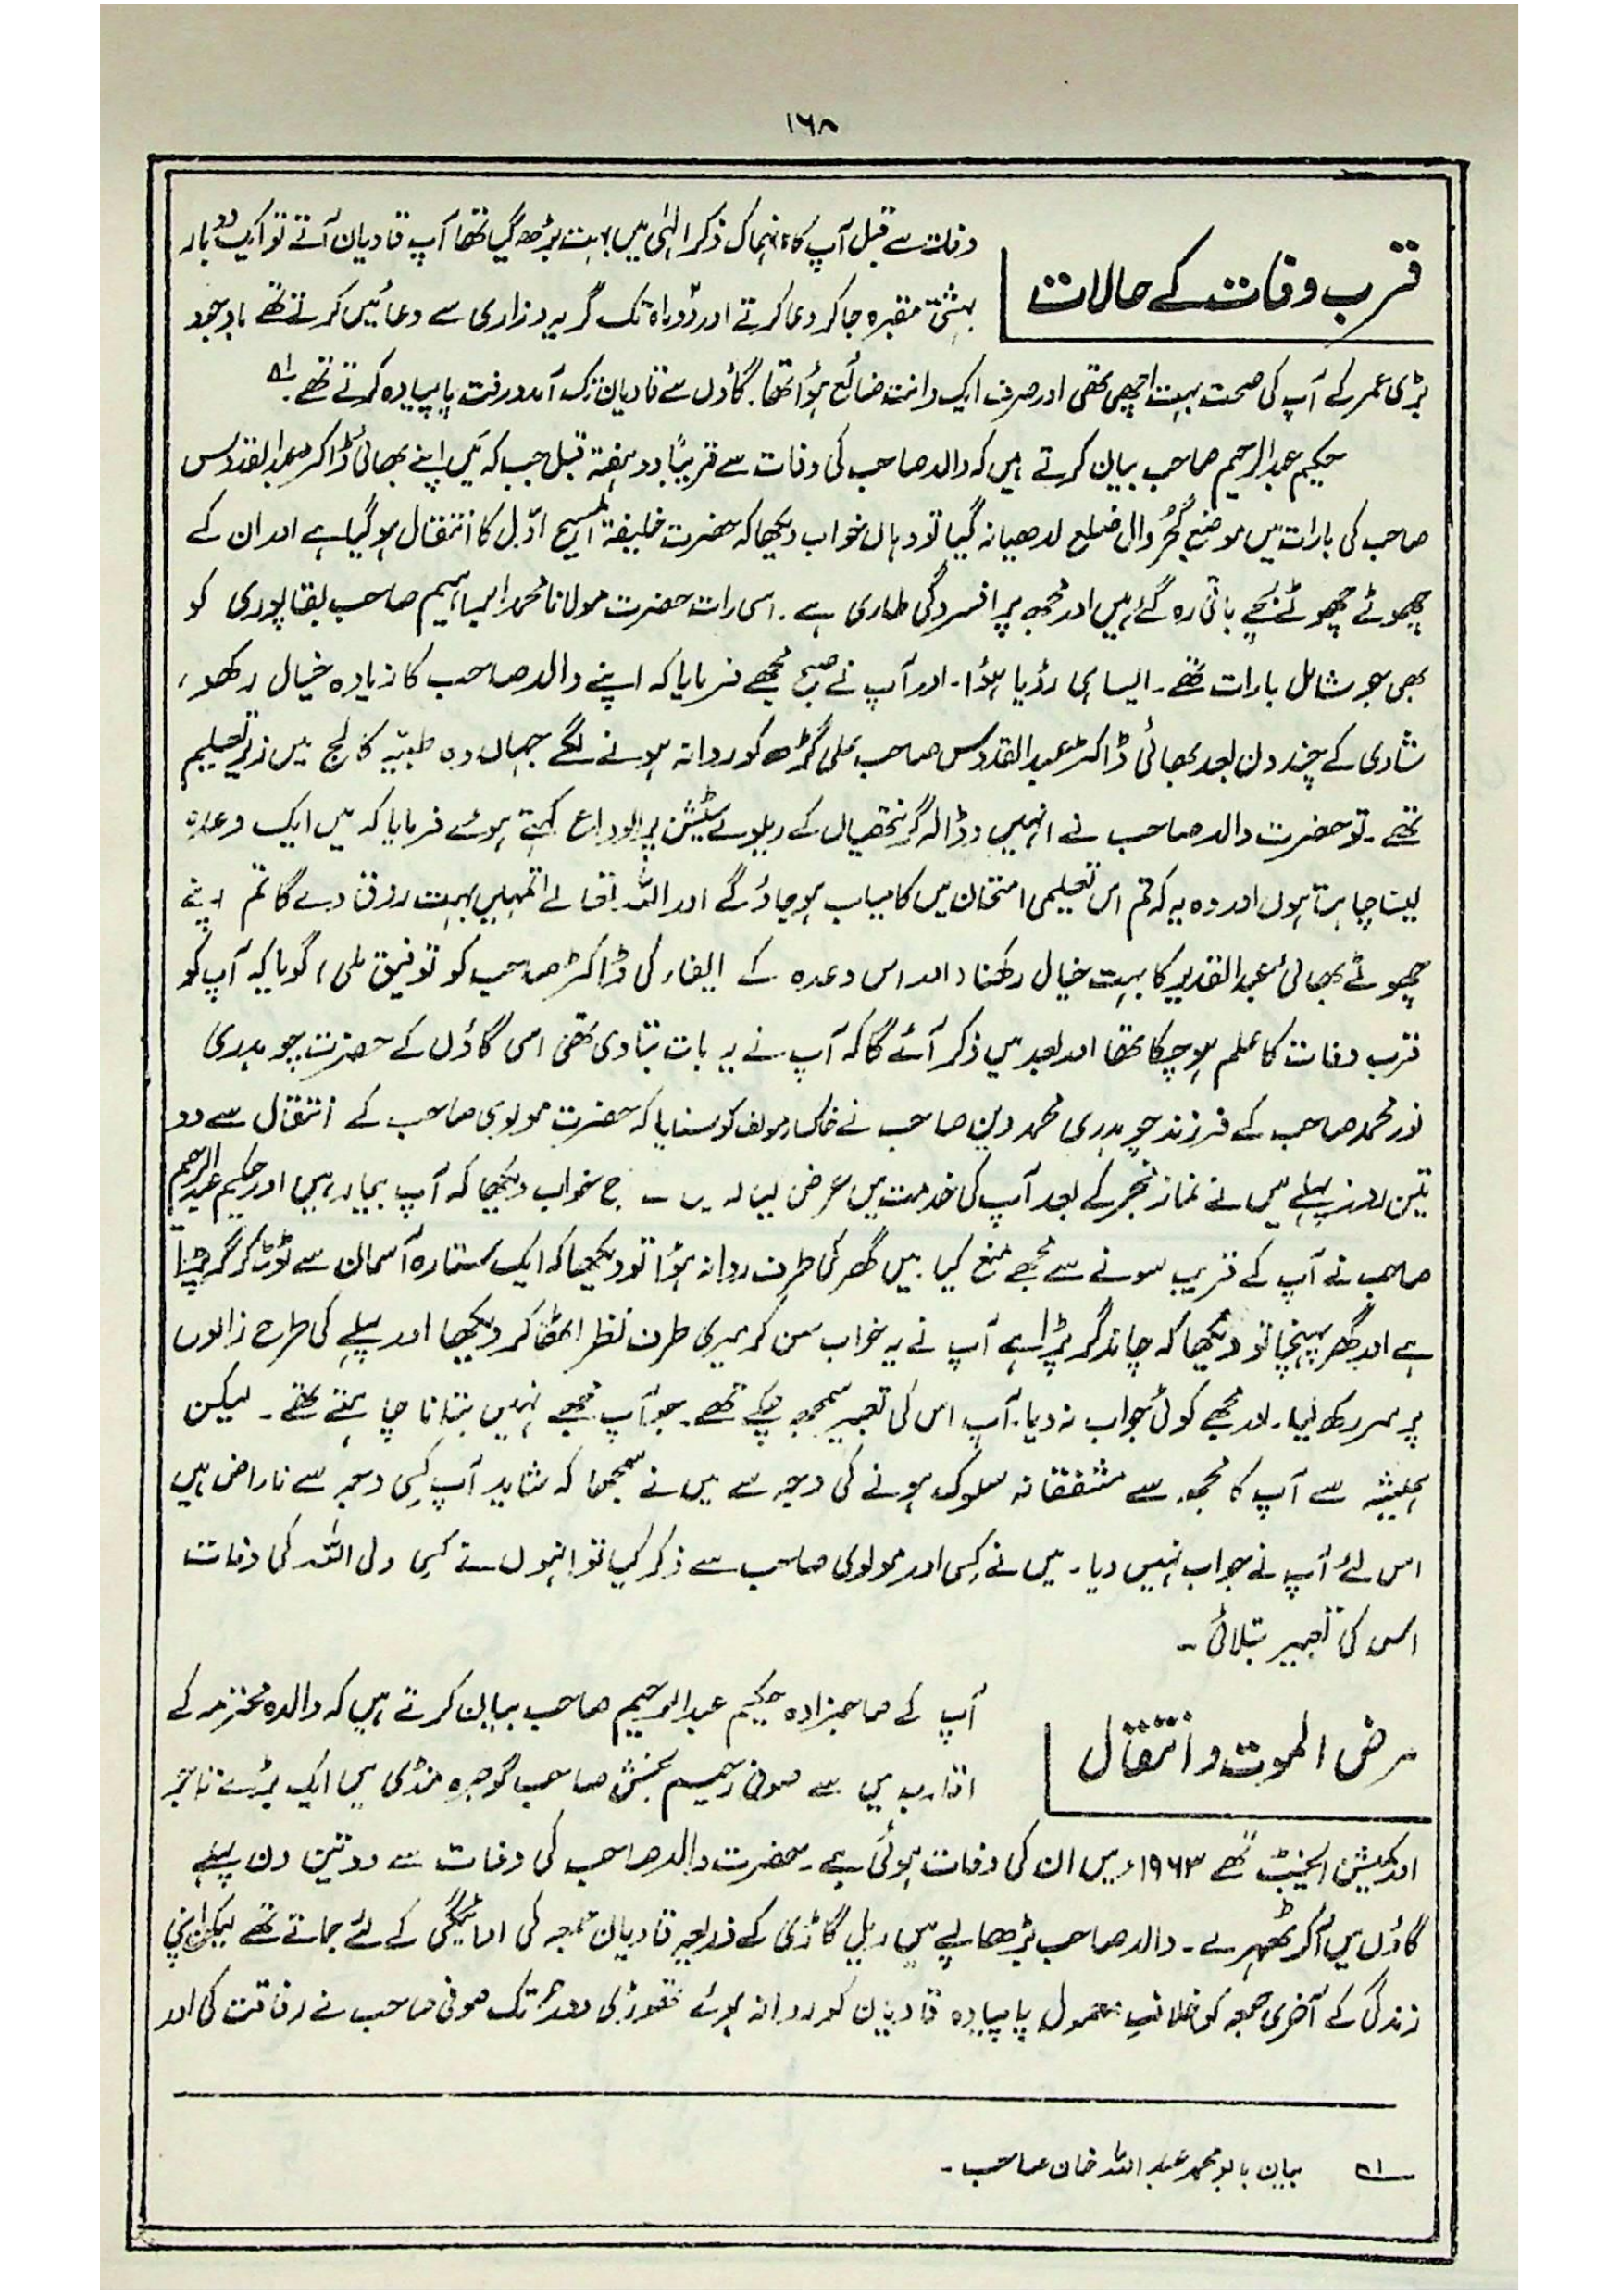 ۱۶۸
قرب وفات کے حالات
وفات سے قبل آپ کا انہماک ذکر الٰہی میں بہت بڑھ گیا تھا آپ قادیان آتے تو ایک دو بار
بہشتی مقبرہ جا کر دعا کرتے اور گریہ و زاری سے دعائیں کرتے تھے باوجود
بڑی عمر کے آپ کی صحت بہت اچھی تھی اور صرف ایک دانت ضائع ہؤا تھا۔ گاؤں سے قادیان تک آمد و رفت پاپیادہ کرتے تھے۔ ۱ھ
حکیم عبدالرحیم صاحب بیان کرتے ہیں کہ والد صاحب کی وفات سے قریباً دو ہفتہ قبل جب کہ مَیں اپنے بھائی ڈاکٹر عبدالقدوس
صاحب کی بارات میں موضع گجُر وال ضلع لدھیانہ گیا تو وہاں خواب دیکھا کہ حضرت خلیفۃ المسیح اوّل کا انتقال ہو گیا ہے اور ان کے
چھوٹے چھوٹے بچے باقی رہ گئے ہیں اور مجھ پر افسردگی طاری ہے۔ اسی رات حضرت مولانا محمد ابراہیم صاحب بقاپوری کو
بھی جو شامل بارات تھے۔ ایسا ہی رؤیا ہؤا۔ اور آپ نے صبح مجھے فرمایا کہ اپنے والد صاحب کا زیادہ خیال رکھو،
شادی کے چند دن بعد بھائی ڈاکٹر عبدالقدوس صاحب علی گڑھ کو روانہ ہونے لگے جہاں وہ طبیّہ کالج میں زیر تعلیم
تھے۔ تو حضرت والد صاحب نے انہیں وڈالہ گرنتھیاں کے ریلوے سٹیشن پر الوداع کہتے ہوئے فرمایا کہ میں ایک وعدہ
لینا چاہتا ہوں اور وہ یہ کہ تم اس تعلیمی امتحان میں کامیاب ہو جاؤ گے اور اللہ تعالےٰ تمہیں بہت رزق دے گا تم اپنے
چھوٹے بھائی عبدالقدیر کا بہت خیال رکھنا (اور اس وعدہ کے ایفاء کی ڈاکٹر صاحب کو توفیق ملی) گویا کہ آپ کو
قرب وفات کا علم ہو چکا تھا اور بعد میں ذکر آئے گا کہ آپ نے یہ بات بتا دی تھی اسی گاؤں کے حضرت چوہدری
نور محمد صاحب کے فرزند چوہدری محمد دین صاحب نے خاکسار مولف کو سنایا کہ حضرت مولوی صاحب کے انتقال سے دو
تین روز پہلے میں نے نماز فجر کے بعد آپ کی خدمت میں عرض خواب دیکھا کہ آپ بیمار ہیں اور حکیم عبدالرحیم
صاحب نے آپ کے قریب سونے سے مجھے منع کیا۔ میں گھر کی طرف روانہ ہؤا تو دیکھا کہ ایک ستارہ آسمان سے ٹوٹ کر گر پڑا
ہے اور گھر پہنچا تو دیکھا کہ چاند گر پڑا ہے آپ نے یہ خواب سن کر میری طرف نظر اٹھا کر دیکھا اور پہلے کی طرح زانوں
پر سر رکھ لیا۔ اور مجھے کوئی جواب نہ دیا۔ آپ اس کی تعبیر سمجھ چکے تھے۔ جو آپ مجھے نہیں بتانا چاہتے تھے۔ لیکن
ہمیشہ سے آپ کا مجھ سے مشفقانہ سلوک ہونے کی وجہ سے میں نے سمجھا کہ شاید آپ کِسی وجہ سے ناراض ہیں
اس لئے آپ نے جواب نہیں دیا۔ میں نے کِسی اور مولوی صاحب سے ذکر کیا تو انہوں نے کِسی ولی اللہ کی وفات
اس کی تعبیر بتلائی۔
مرض الموت و انتقال
آپ کے صاحبزادہ حکیم عبدالرحیم صاحب بیان کرتے ہیں کہ والدہ محترمہ کے
اقارب میں سے صوفی رحیم بخش صاحب گوجرہ منڈی میں ایک بڑے تاجر
اور کمیشن ایجنٹ تھے ۱۹۶۳ء میں ان کی وفات ہوئی ہے۔ حضرت والد صاحب کی وفات سے دو تین دن پہلے
گاؤں میں آ کر ٹھہرے۔ والد صاحب بڑھاپے میں ریل گاڑی کے ذریعہ قادیان جمعہ کی ادائیگی کے لئے جاتے تھے لیکن اپنی
زندگی کے آخری جمعہ کو خلافِ معمول پاپیادہ قادیان کو روانہ ہوئے تھوڑی دور تک صوفی صاحب نے رفاقت کی اور
۱ھ بیان بابو محمد عبد اللہ خان صاحب۔